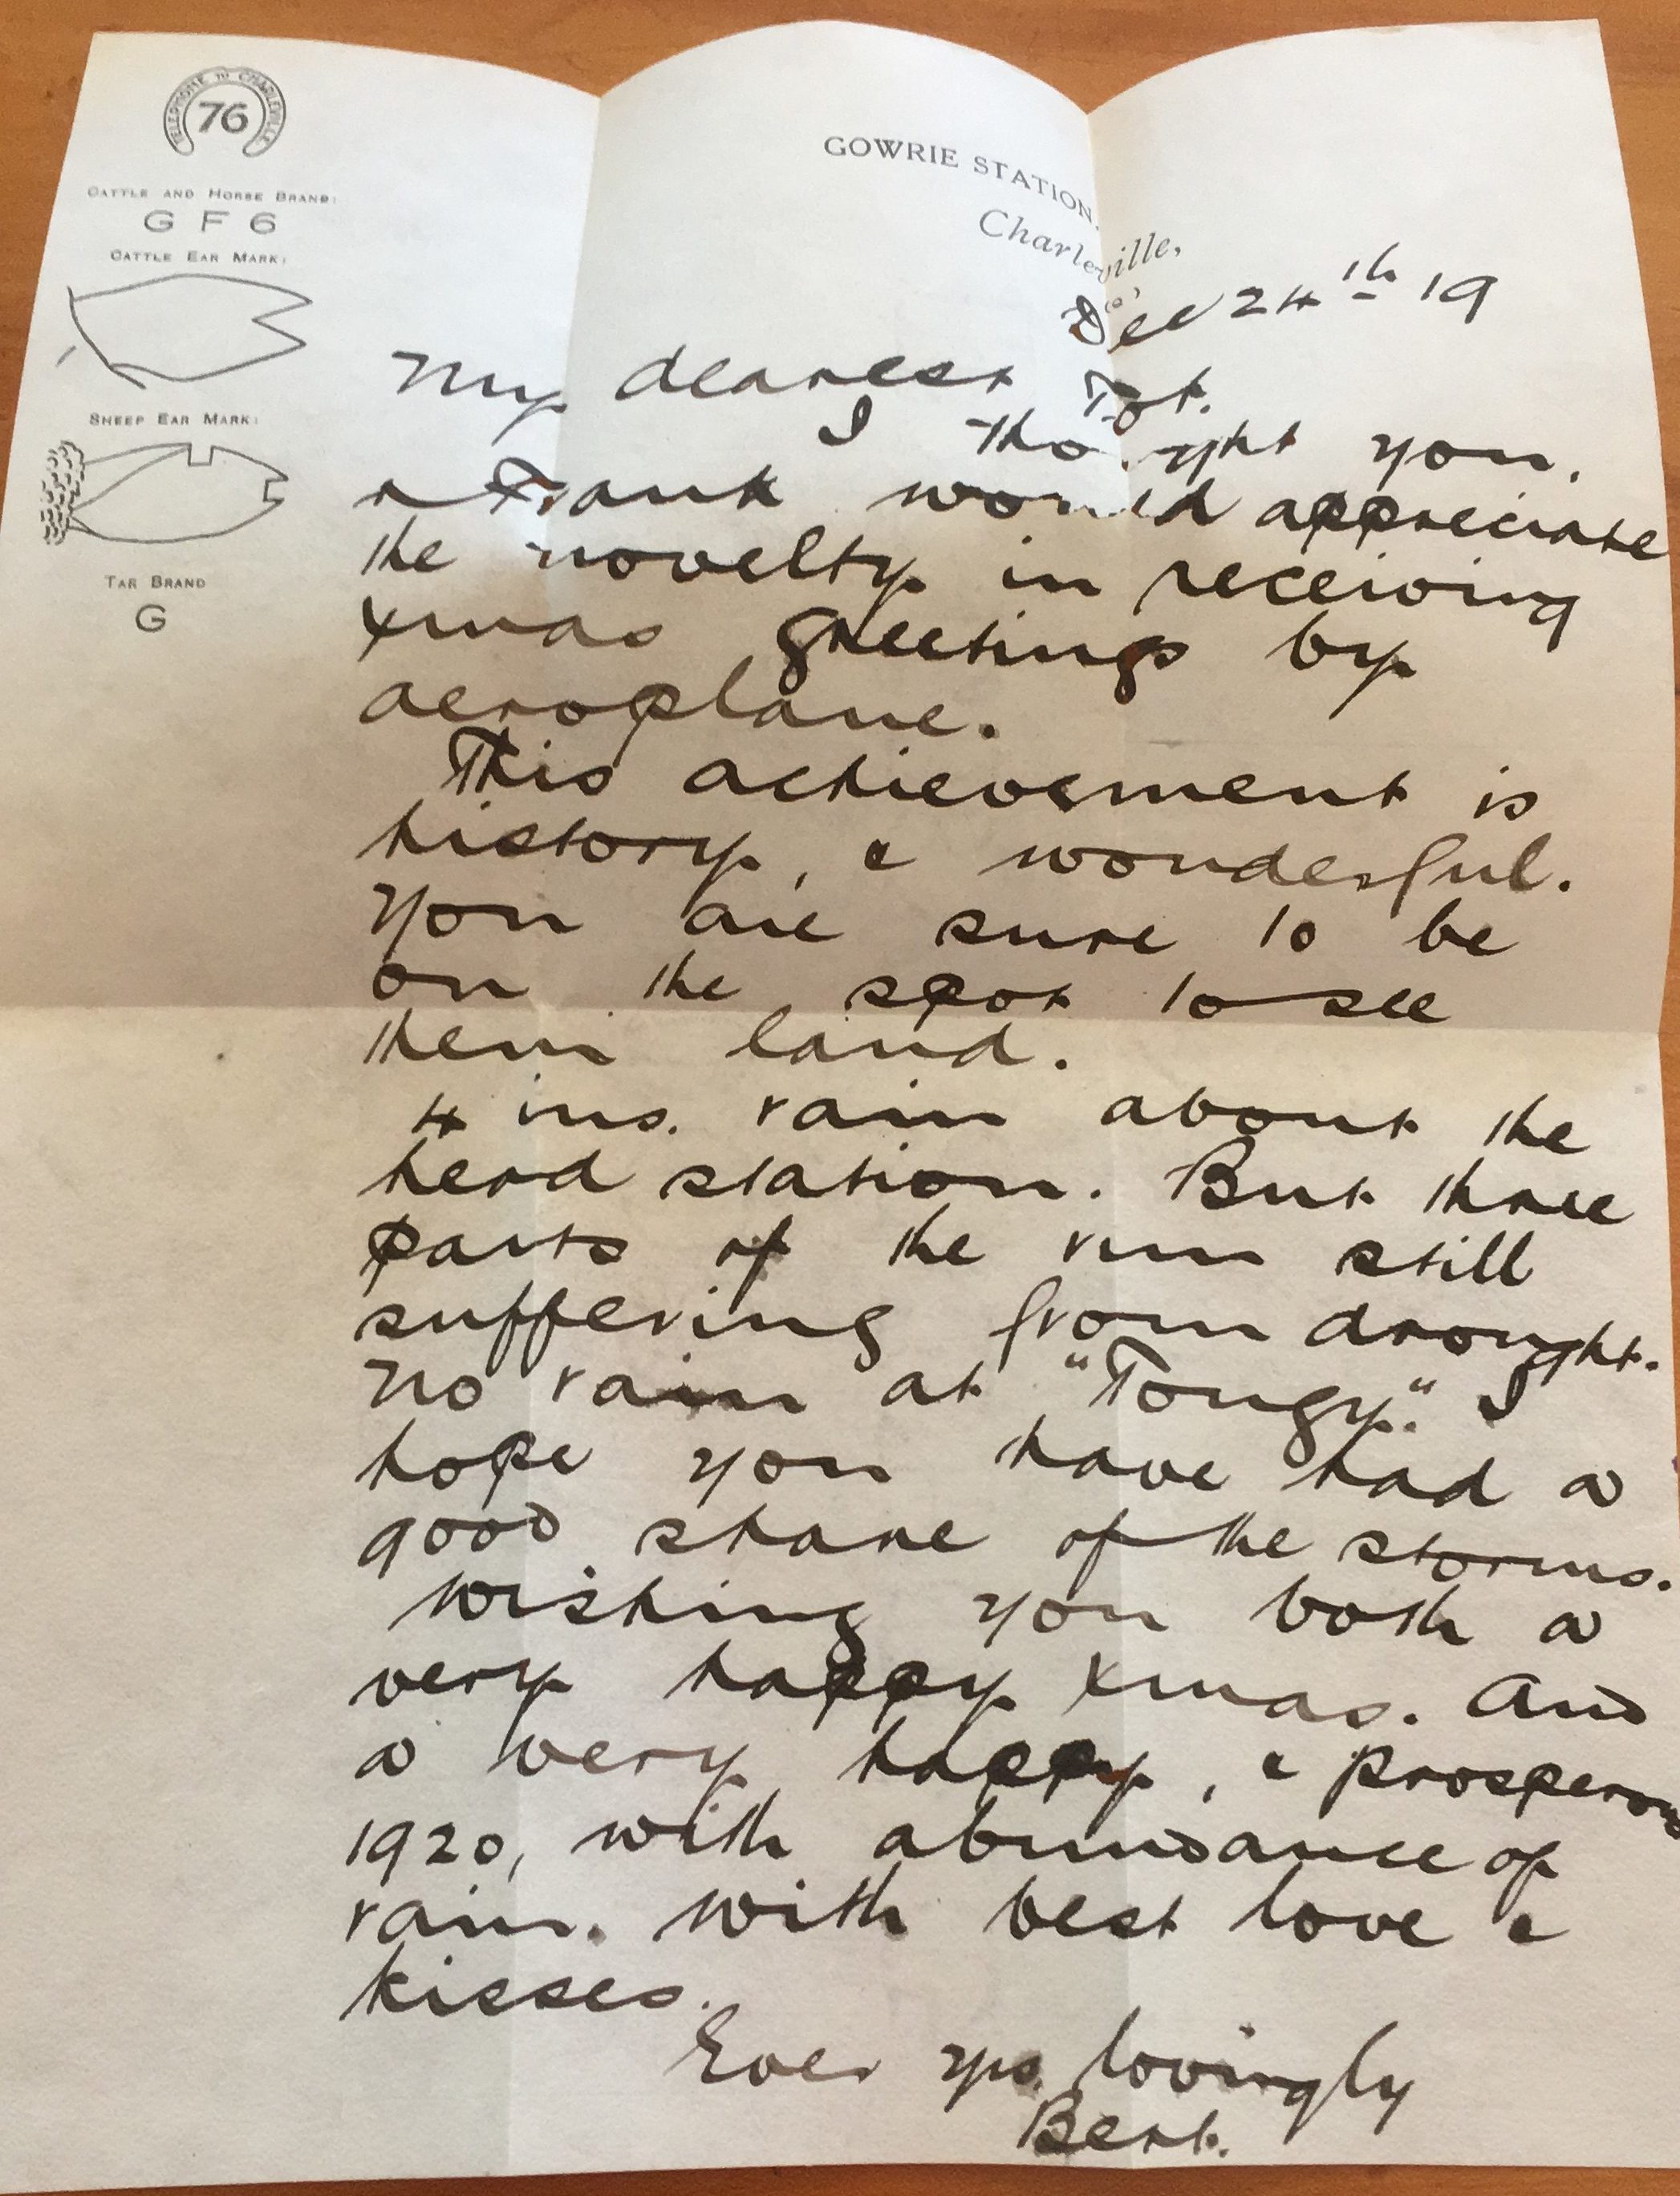 TELEPHONE TO CHARLEVILLE
76
CATTLE AND HORSE BRAND:
G F 6
CATTLE EAR MARK:
SHEEP EAR MARK:
TAR BRAND
G
GOWRIE STATION.
Charleville,
Dec 24th 19
My dearest Tot.
I thought you,
& Frank would appreciate
the novelty in receiving
xmas greetings by
aeroplane.
This achievement is
history, & wonderful.
You are sure to be
on the spot to see
them land.
4 ins. rain about the
head station. But three
parts of the run still
suffering from drought.
No rain at "Tongy." I
hope you have had a
good share of the storms.
Wishing you both a
very happy xmas. And
a very happy, & prosperous
1920, with abundance of
rain. With best love &
kisses.
Ever yrs. lovingly
Bert.